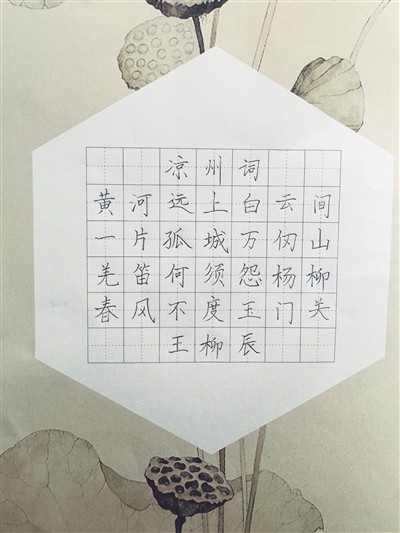 凉州词
黄河远上白云间
一片孤城万仞山
羌笛何须怨杨柳
春风不度玉门关
王柳辰